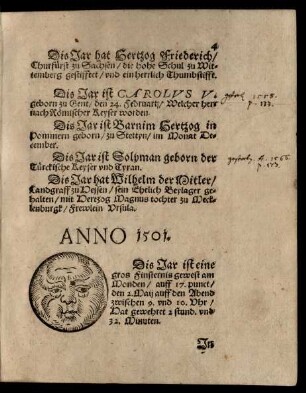 Dis Jar hat Hertzog Friederich/
Churfürst zu Sachsen/ die hohe Schul zu Wit-
temberg gestifftet/ vnd ein herrlich Thumbstifft.
Dis Jar ist CAROLVS V.
geborn zu Gent/ den 24. Februarij/ Welcher her-
nach Römischer Keyser worden.
Dis Jar ist Barnim Hertzog in
Pommern geborn/ zu Stettyn/ im Monat De-
cember.
Dis Jar ist Solyman geborn der
Türckische Keyser vnd Tyran.
Dis Jar hat Wilhelm der Mitler/
Landgraff zu Hessen/ sein Ehrlich Beylager ge-
halten/ mit Hertzog Magnus tochter zu Meck-
lenburgk/ Frewlein Vrsula.
ANNO 1501.
Dis Jar ist eine
gros Finsternis gewest am
Monden/ auff 17. punct/
den 2. Maij auff den Abend
zwischen 9. vnd 10. Vhr/
Hat gewehret 2 stund. vnd
32. Minuten.